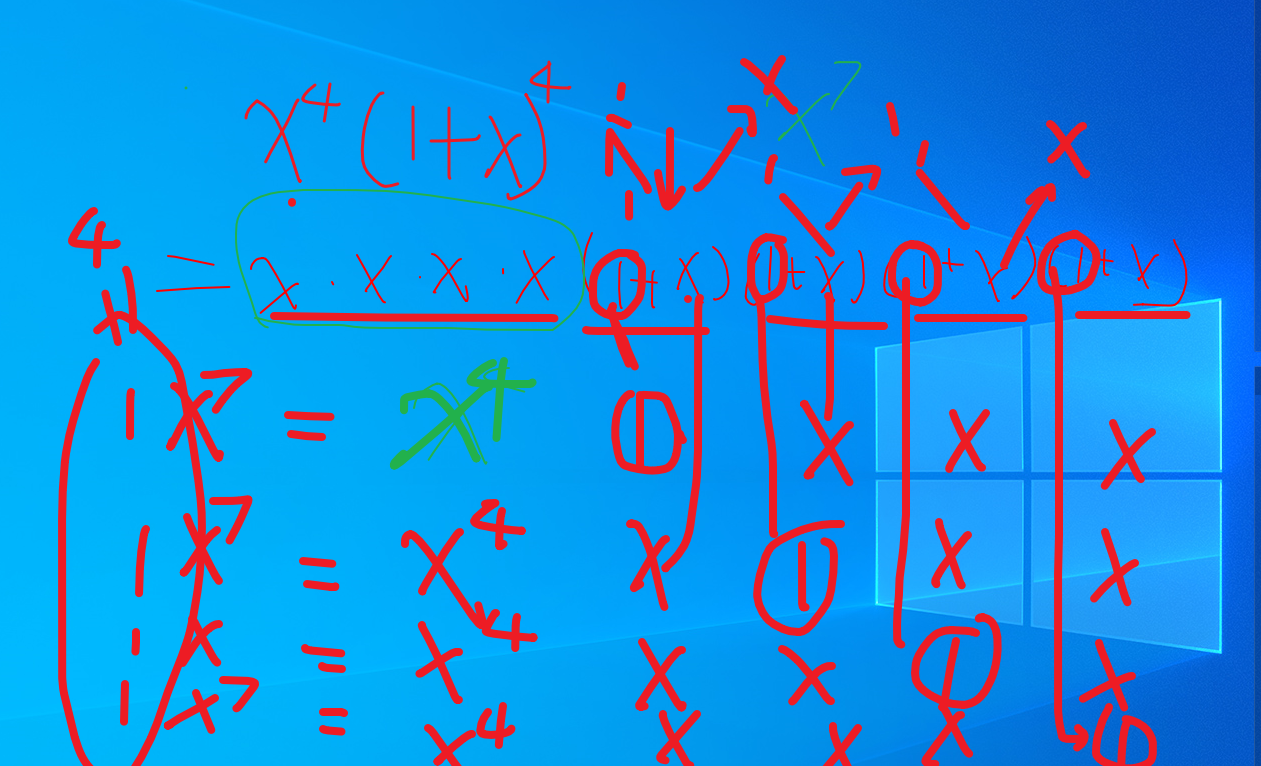 x⁴(1+x)⁴
x⁷
= x · x · x · x (1+x)(1+x)(1+x)(1+x)
4
1 x⁷ = x⁴ 1 x x x
1 x⁷ = x⁴ x 1 x x
1 x = x⁴ x x 1 x
1 x⁷ = x⁴ x x x 1